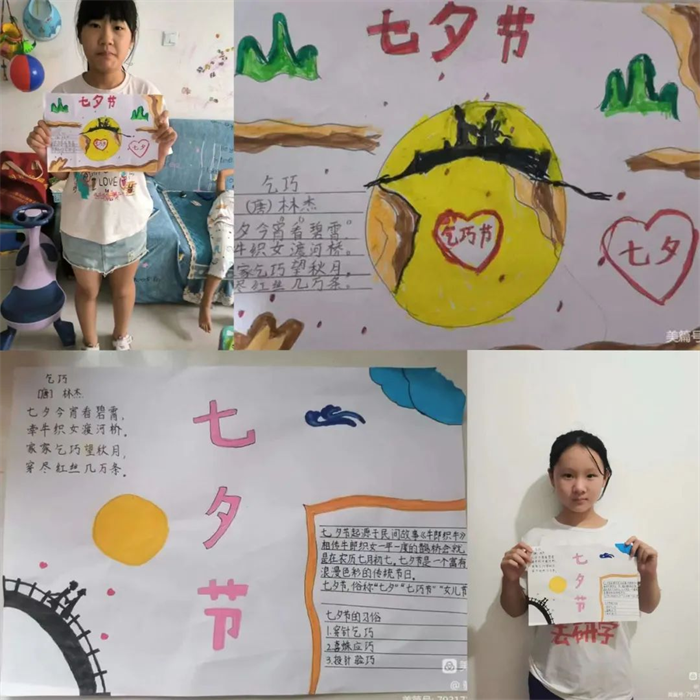 七夕节
LOVE
七夕节
乞巧
(唐)林杰
夕今宵看碧霄
牛织女渡河桥。
家乞巧望秋月,
尽红丝几万条。
乞巧节
七夕
美篇号
乞巧
(唐) 林杰
七夕今宵看碧霄,
牵牛织女渡河桥。
家家乞巧望秋月,
穿尽红丝几万条。
七夕节
七夕节起源于民间故事《牛郎织女》
相传牛郎织女一年一度的鹊桥会就
是在农历七月初七,七夕节是一个富有
浪漫色彩的传统节日。
七夕节,俗称“七夕”“七巧节”“女儿节
七夕节的习俗
1.穿针乞巧
2.喜蛛应巧
3.投针验巧
七夕节
去研学